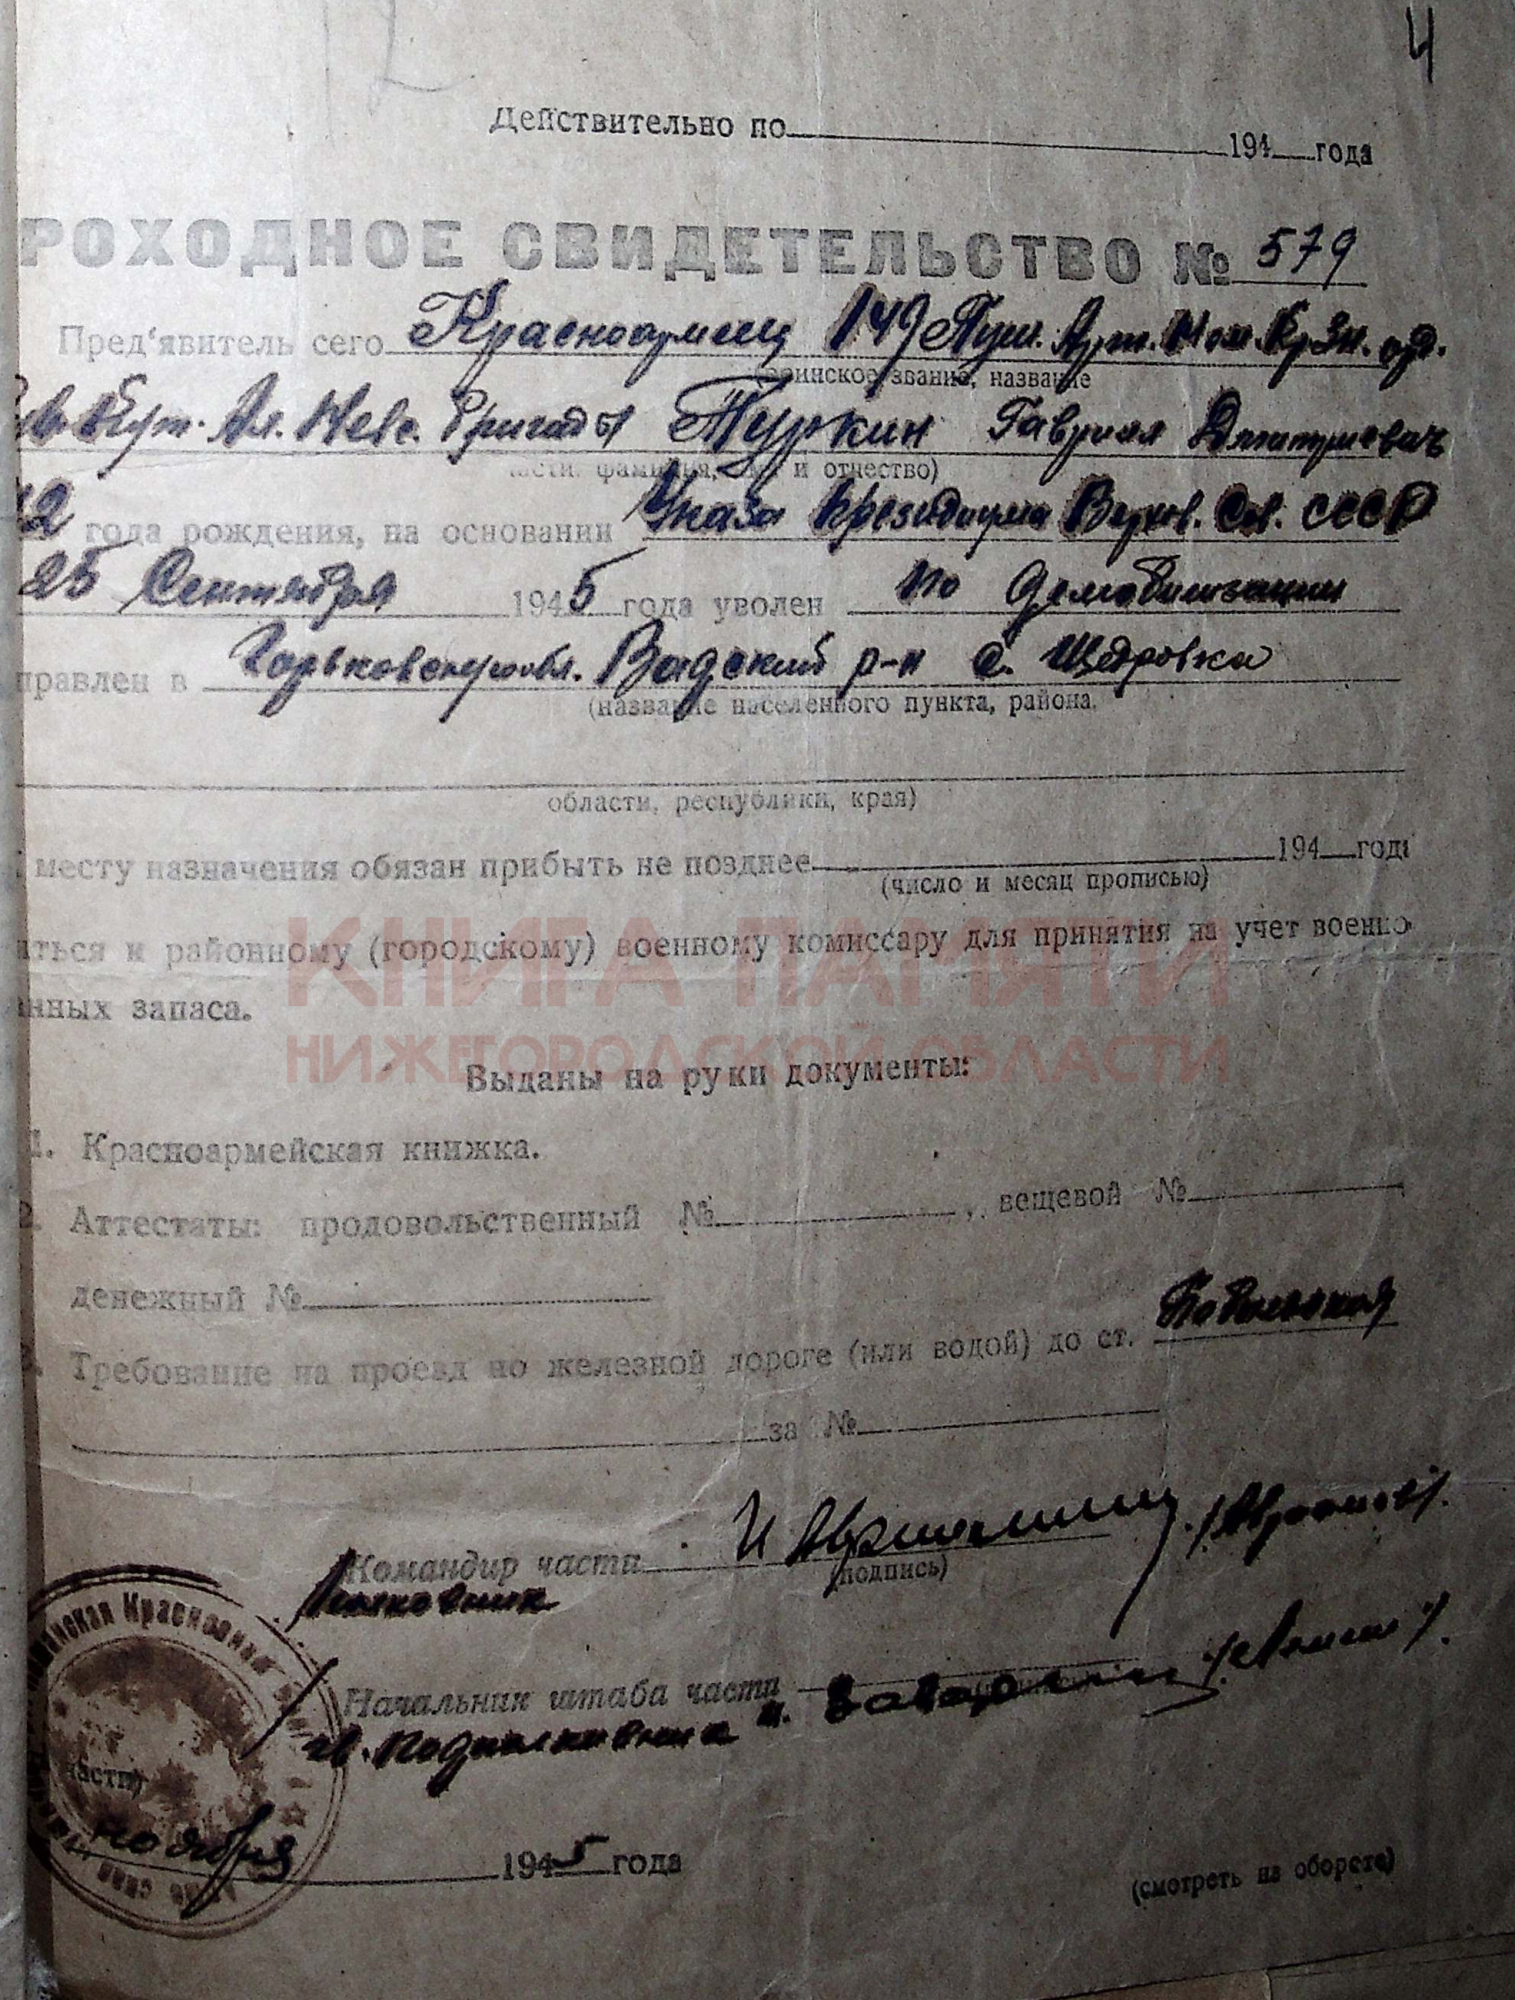 4
Действительно по 194 года
РОХОДНОЕ СВИДЕТЕЛЬСТВО № 579
Пред'явитель сего Красноармеец 149 Пуш. Арт. Ном. Крзн. орд.
(воинское звание, название
Кут. Ал. Невс. Бригады Туркин Гавриил Дмитриевич
части, фамилия, имя и отчество)
12 года рождения, на основании Указа Президиума Верхов. Сов. СССР
25 Сентября 1945 года уволен по демобилизации
правлен в Горьковскую обл. Вадский р-н с. Щедровка
(название населенного пункта, района,
области, республики, края)
месту назначения обязан прибыть не позднее 194 года
(число и месяц прописью)
иться к районному (городскому) военному комиссару для принятия на учет военно
нных запаса.
КНИГА ПАМЯТИ
НИЖЕГОРОДСКОЙ ОБЛАСТИ
Выданы на руки документы:
1. Красноармейская книжка.
2. Аттестаты: продовольственный № , вещевой №
денежный №
Требование на проезд по железной дороге (или водой) до ст.
за №
Командир части
(подпись)
Полковник
Начальник штаба части
гв. подполковник
части)
ноября 1945 года
(смотреть на обороте)